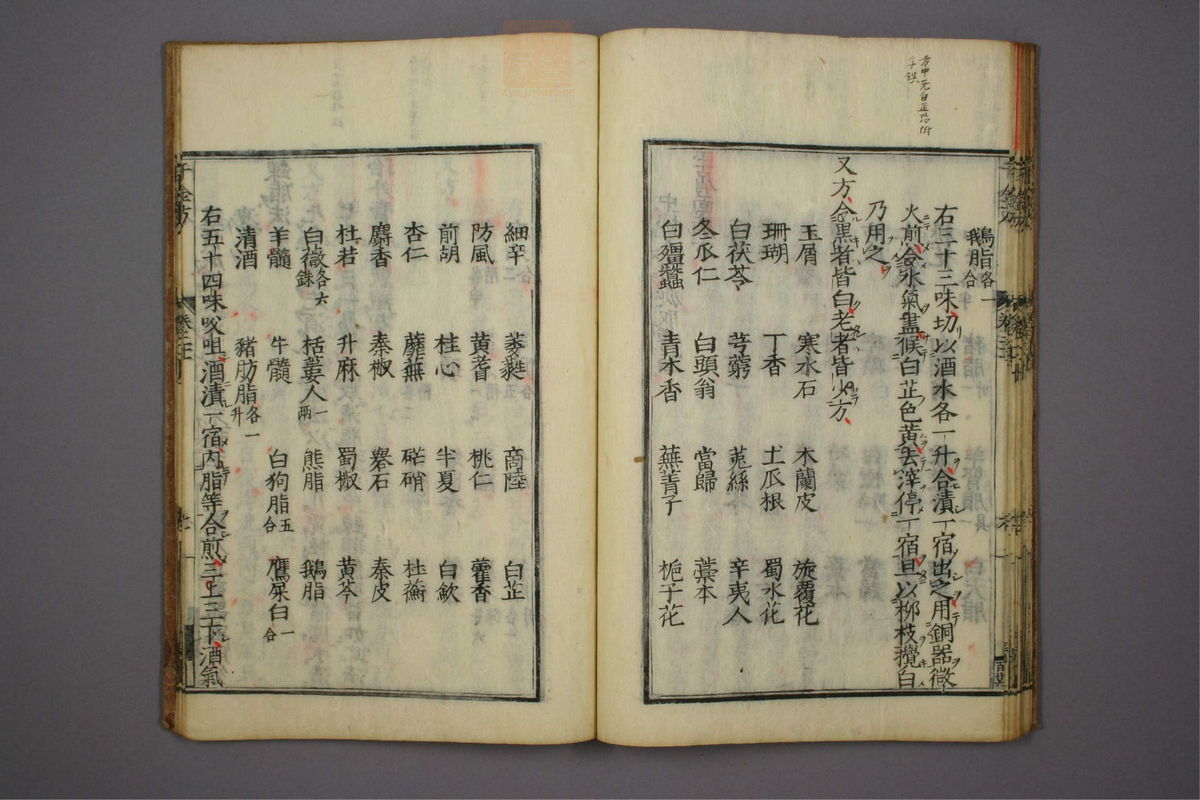 鵝脂各一合
右三十三味切以酒水各一升合漬一宿出之用銅器微
火煎令水氣盡候白芷色黃去滓停一宿旦以柳枝攪白
乃用之
又方令黑者皆白老者皆少方
玉屑 寒水石 木蘭皮 旋覆花
珊瑚 丁香 土瓜根 蜀水花
白茯苓 芎藭 菟絲 辛夷人
冬瓜仁 白頭翁 當歸 藁本
白殭蠶 青木香 蕪菁子 梔子花
細辛 萎蕤 商陸 白芷
防風 黃耆 桃仁 藿香
前胡 桂心 半夏 白歛
杏仁 蘼蕪 硭硝 杜蘅
麝香 秦椒 礜石 秦皮
杜若 升麻 蜀椒 黃芩
白薇各六銖 栝蔞人一兩 熊脂 鵝脂
羊髓 牛髓 白狗脂五合 鷹屎白一合
清酒 豬肪脂各一升
右五十四味㕮咀酒漬一宿內脂等合煎三上三下酒氣